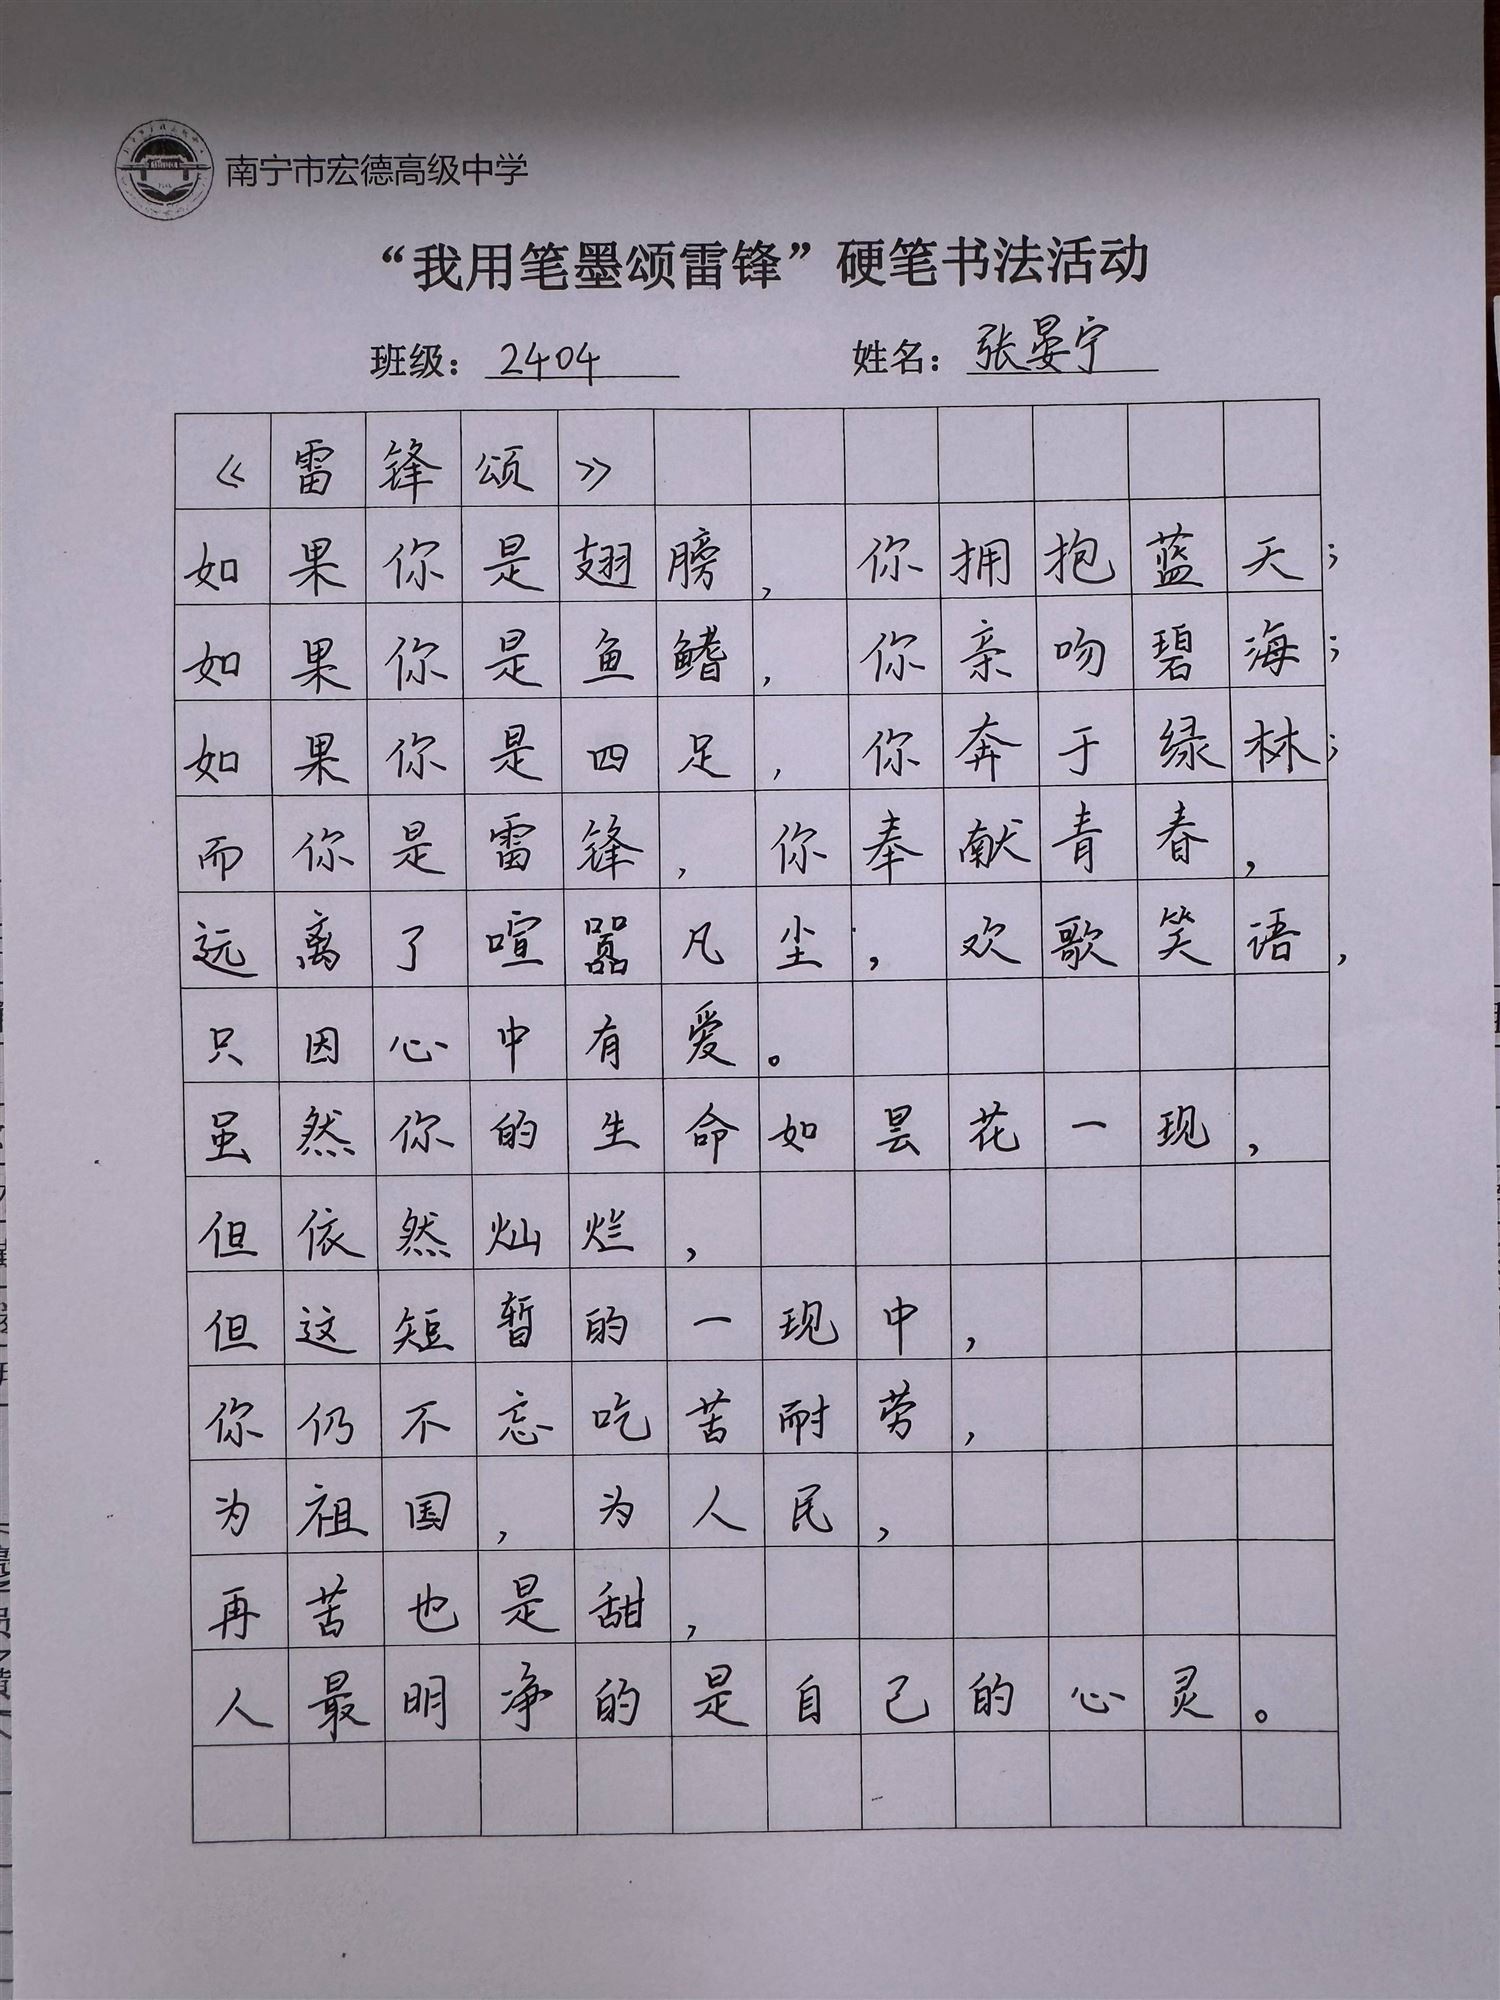 南宁市宏德高级中学
“我用笔墨颂雷锋”硬笔书法活动
班级：2404 姓名：张晏宁
《雷锋颂》
如果你是翅膀，你拥抱蓝天；
如果你是鱼鳍，你亲吻碧海；
如果你是四足，你奔于绿林；
而你是雷锋，你奉献青春，
远离了喧嚣凡尘，欢歌笑语，
只因心中有爱。
虽然你的生命如昙花一现，
但依然灿烂，
但这短暂的一现中，
你仍不忘吃苦耐劳，
为祖国，为人民，
再苦也是甜，
人最明净的是自己的心灵。